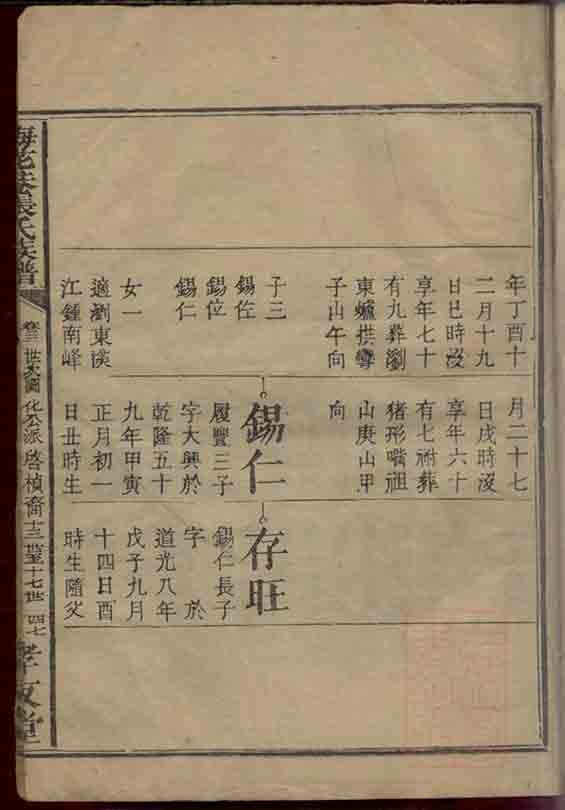 年丁酉十
二月十九
日巳時沒
享年七十
有九葬瀏
東蠦拱彎
子山午向
子三
錫佐
錫位
錫仁
女一
適瀏東溪
江鍾南峰
月二十七
日戌時沒
享年六十
有七祔葬
猪形嘴祖
山庚山甲
向
錫仁
履豐三子
字大興於
乾隆五十
九年甲寅
正月初一
日丑時生
存旺
錫仁長子
字 於
道光八年
戊子九月
十四日酉
時生隨父
張氏族譜
世次圖 化公派 啓楨裔 十三世至十七世 四七
孝友堂